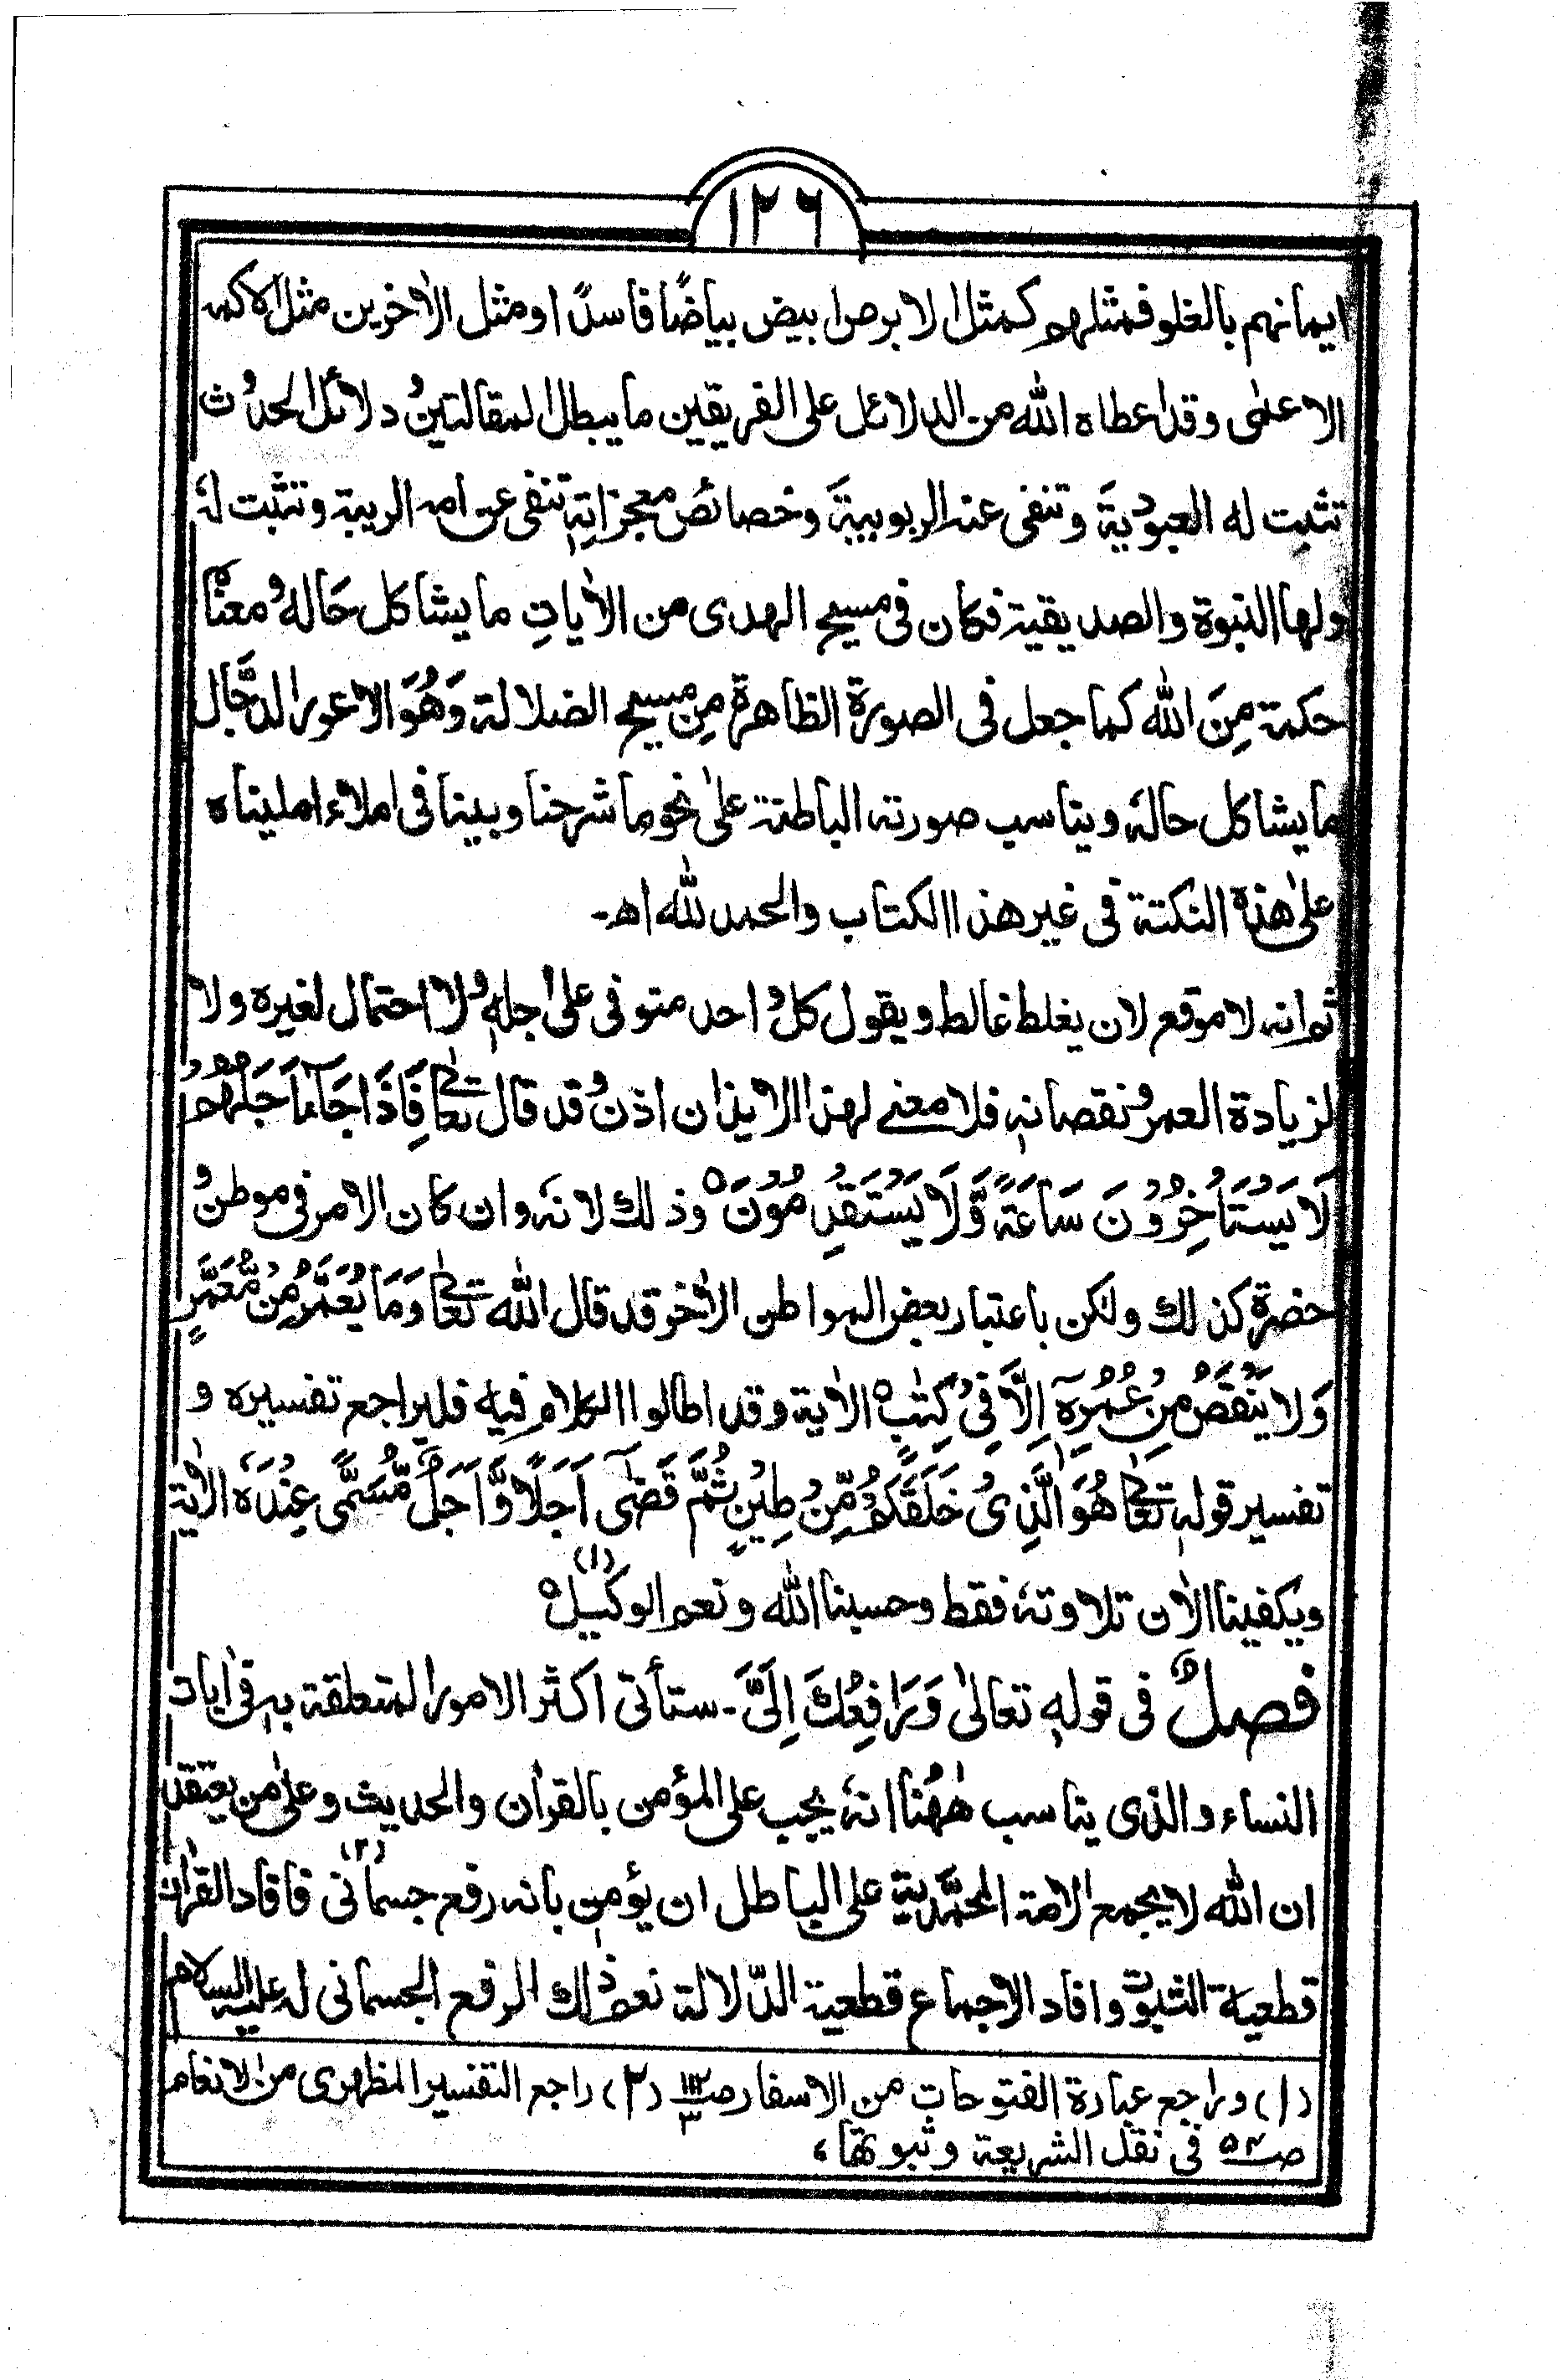 ١٢٦
ايمانهم بالغلو فمثلهم كمثل الابرص ابيض بياضًا فاسدًا ومثل الاٰخرين مثل الاكمه
الاعمٰى وقد اعطاه الله من الدلائل على الفريقين ما يبطل المقالتين ودلائل الحدوث
تثبت له العبودية وتنفى عنه الربوبية وخصائص معجزاتهٖ تنفى عن امه الريبة وتثبت لهٗ
ولها النبوة والصديقية فكان فى مسيح الهدى من الاٰياتِ ما يشاكل حَالهٗ ومعناه
حكمة مِنَ الله كما جعل فى الصورة الظاهرة مِن مسيح الضلالة وَهُوَ الاعور الدجَّال
ما يشاكل حالهٗ ويناسب صورته الباطنة علىٰ نحو ما شرحنا وبينا فى املاء امليناه
علىٰ هٰذه النكتة فى غير هذا الكتاب والحمد لله اهـ۔
ثم انه لا موقع لان يغلط غالط ويقول كل واحد متوفى على اجلهٖ ولا احتمال لغيره ولا
لزيادة العمر ونقصانهٖ فلا معنے لهذا الايذان اذن وقد قال تعالےٰ فَاِذَا جَآءَ اَجَلُهُمْ
لَا يَسْتَاْخِرُوْنَ سَاعَةً وَّلَا يَسْتَقْدِمُوْنَ٥ وذلك لانهٗ وان كان الامر فى موطن و
حضرة كذلك ولكن باعتبار بعض المواطن الاٰخر قد قال الله تعالےٰ وَمَا يُعَمَّرُ مِنْ مُّعَمَّرٍ
وَّلَا يُنْقَصُ مِنْ عُمُرِهٖٓ اِلَّا فِىْ كِتٰبٍ٥ الاٰية وقد اطالوا الكلام فيه فليراجع تفسيره و
تفسير قولهٖ تعالےٰ هُوَ الَّذِىْ خَلَقَكُمْ مِّنْ طِيْنٍ ثُمَّ قَضٰٓى اَجَلًا وَّاَجَلٌ مُّسَمًّى عِنْدَهٗ الاٰية
ويكفينا الاٰن تلاوتهٗ فقط وحسبنا الله ونعم الوكيل٥ (١)
فصلٌ فى قولهٖ تعالىٰ وَرَافِعُكَ اِلَىَّ ۔ ستأتى اكثر الامور المتعلقة بهٖ فى اٰيات
النساء والذى يناسب هٰهُنا انهٗ يجب على المؤمن بالقراٰن والحديث وعلىٰ من يعتقد
ان الله لا يجمع الامة المحمَّدية على الباطل ان يؤمن بانه رفع جسمانى (٢) فافاد القراٰن
قطعية الثبوت وافاد الاجماع قطعية الدّلالة نعم ذٰلك الرفع الجسمانى له عليه السلام
(١) وراجع عبارة الفتوحات من الاسفار ص١١٢/٣ (٢) راجع التفسير المظهرى من الانعام
ص٥٣ فى نقل الشريعة وثبوتها،